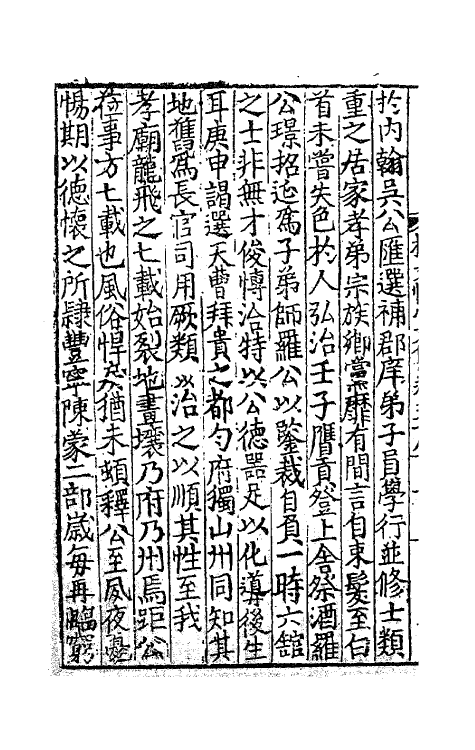 於内翰吳公匯選補郡庠弟子員學行並修士類
重之居家孝弟宗族鄉黨靡有間言自束髪至白
首未嘗失色於人弘治壬子膺貢登上舍祭酒羅
公璟招延爲子弟師羅公以鑒裁自負一時六舘
之士非無才俊慱洽特以公德器足以化導後生
耳庚申謁選天曹拜貴之都勻府獨山州同知其
地舊爲長官司用厥類以治之以順其性至我
孝廟龍飛之七載始裂地畫壤乃府乃州焉距公
蒞事方七載也風俗悍戾猶未頓釋公至夙夜
惕期以德懷之所隷豐寧陳蒙二部歲每再